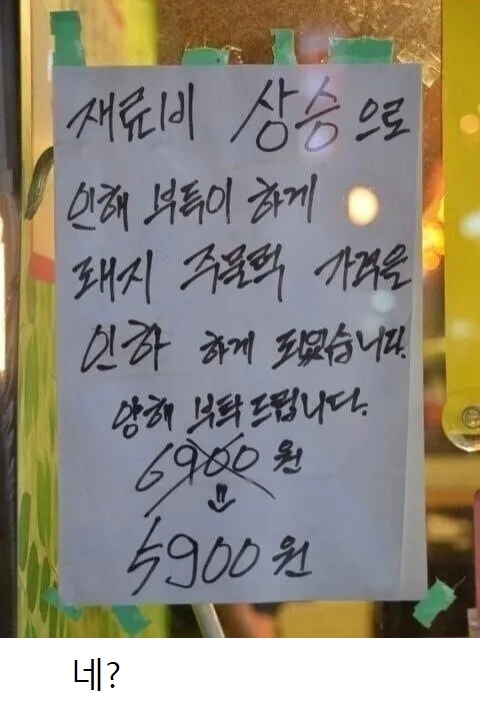 재류비 상승으로
인해 부득이 하게
돼지 주물럭 가격을
인하 하게 되었습니다.
양해 부탁드립니다.
6900원
⇓
5900원
네?